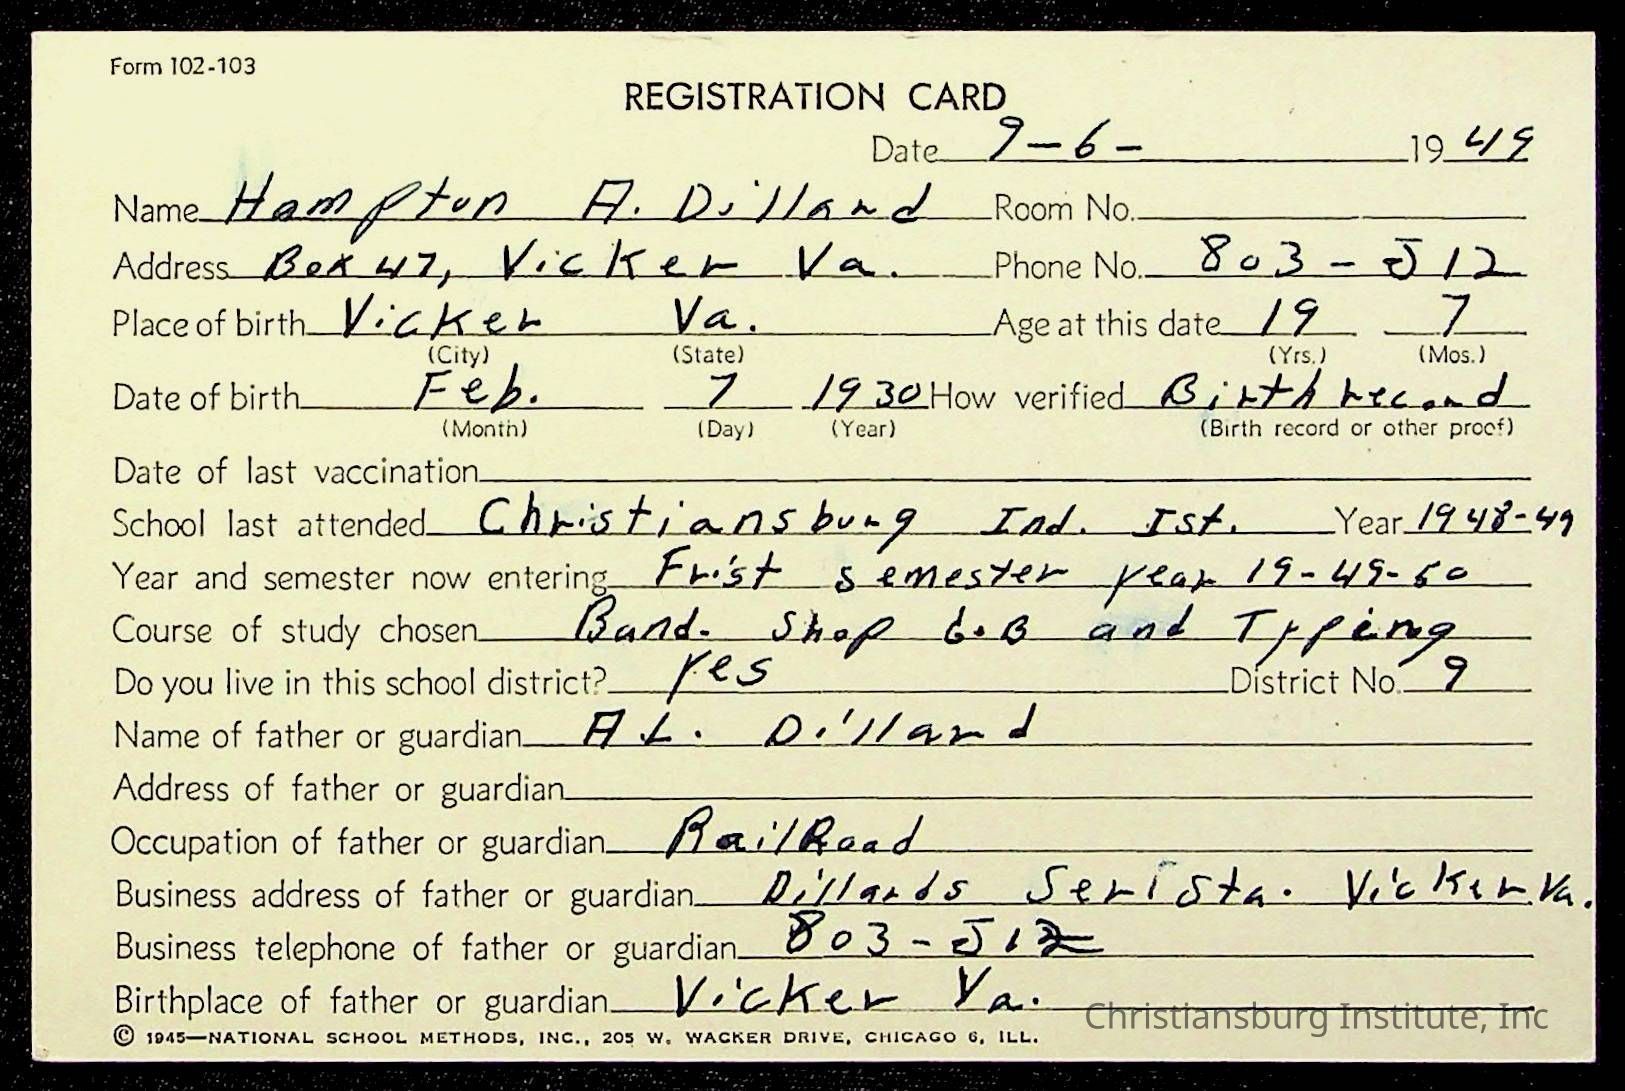 Form 102-103
REGISTRATION CARD
Date 9-6- 1949
Name Hampton A. Dillard Room No.
Address Box 47, Vicker Va. Phone No. 803-J12
Place of birth Vicker Va. Age at this date 19 7
(City) (State) (Yrs.) (Mos.)
Date of birth Feb. 7 1930 How verified Birth record
(Month) (Day) (Year) (Birth record or other proof)
Date of last vaccination
School last attended Christiansburg Ind. Ist. Year 1948-49
Year and semester now entering Frist semester year 19-49-50
Course of study chosen Band. Shop G.B and Typing
Do you live in this school district? Yes District No. 9
Name of father or guardian A.L. Dillard
Address of father or guardian
Occupation of father or guardian RailRoad
Business address of father or guardian Dillards Ser. Sta. Vicker Va.
Business telephone of father or guardian 803-J12
Birthplace of father or guardian Vicker Va.
Christiansburg Institute, Inc
© 1945—NATIONAL SCHOOL METHODS, INC., 205 W. WACKER DRIVE, CHICAGO 6, ILL.